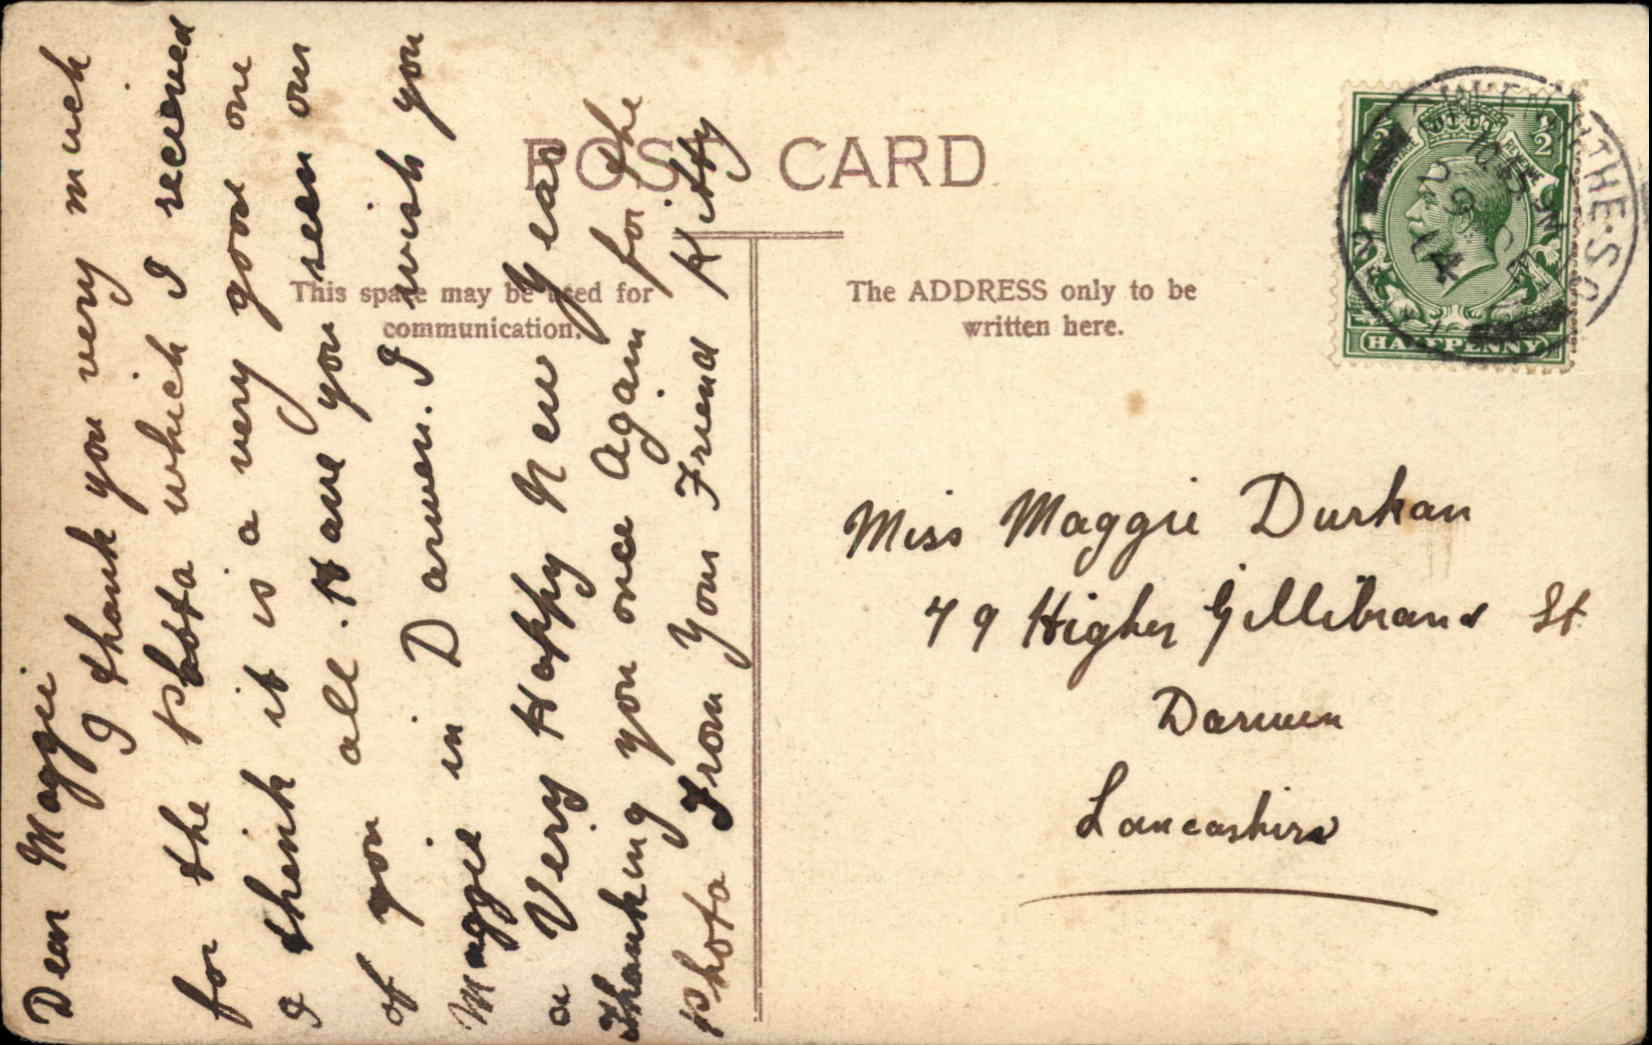 POST CARD
This space may be used for
communication.
The ADDRESS only to be
written here.
Dear Maggie
I thank you very much
for the Photo which I received
I think it is a very good one
of you all. Have you seen our
Maggie in Darwen. I wish you
a Very Happy New Year
Thanking you once Again for the
Photo From Your Friend Kitty
Miss Maggie Durkan
79 Higher Gillibrand St
Darwen
Lancashire
HALFPENNY
10.15 PM
29 DE
14